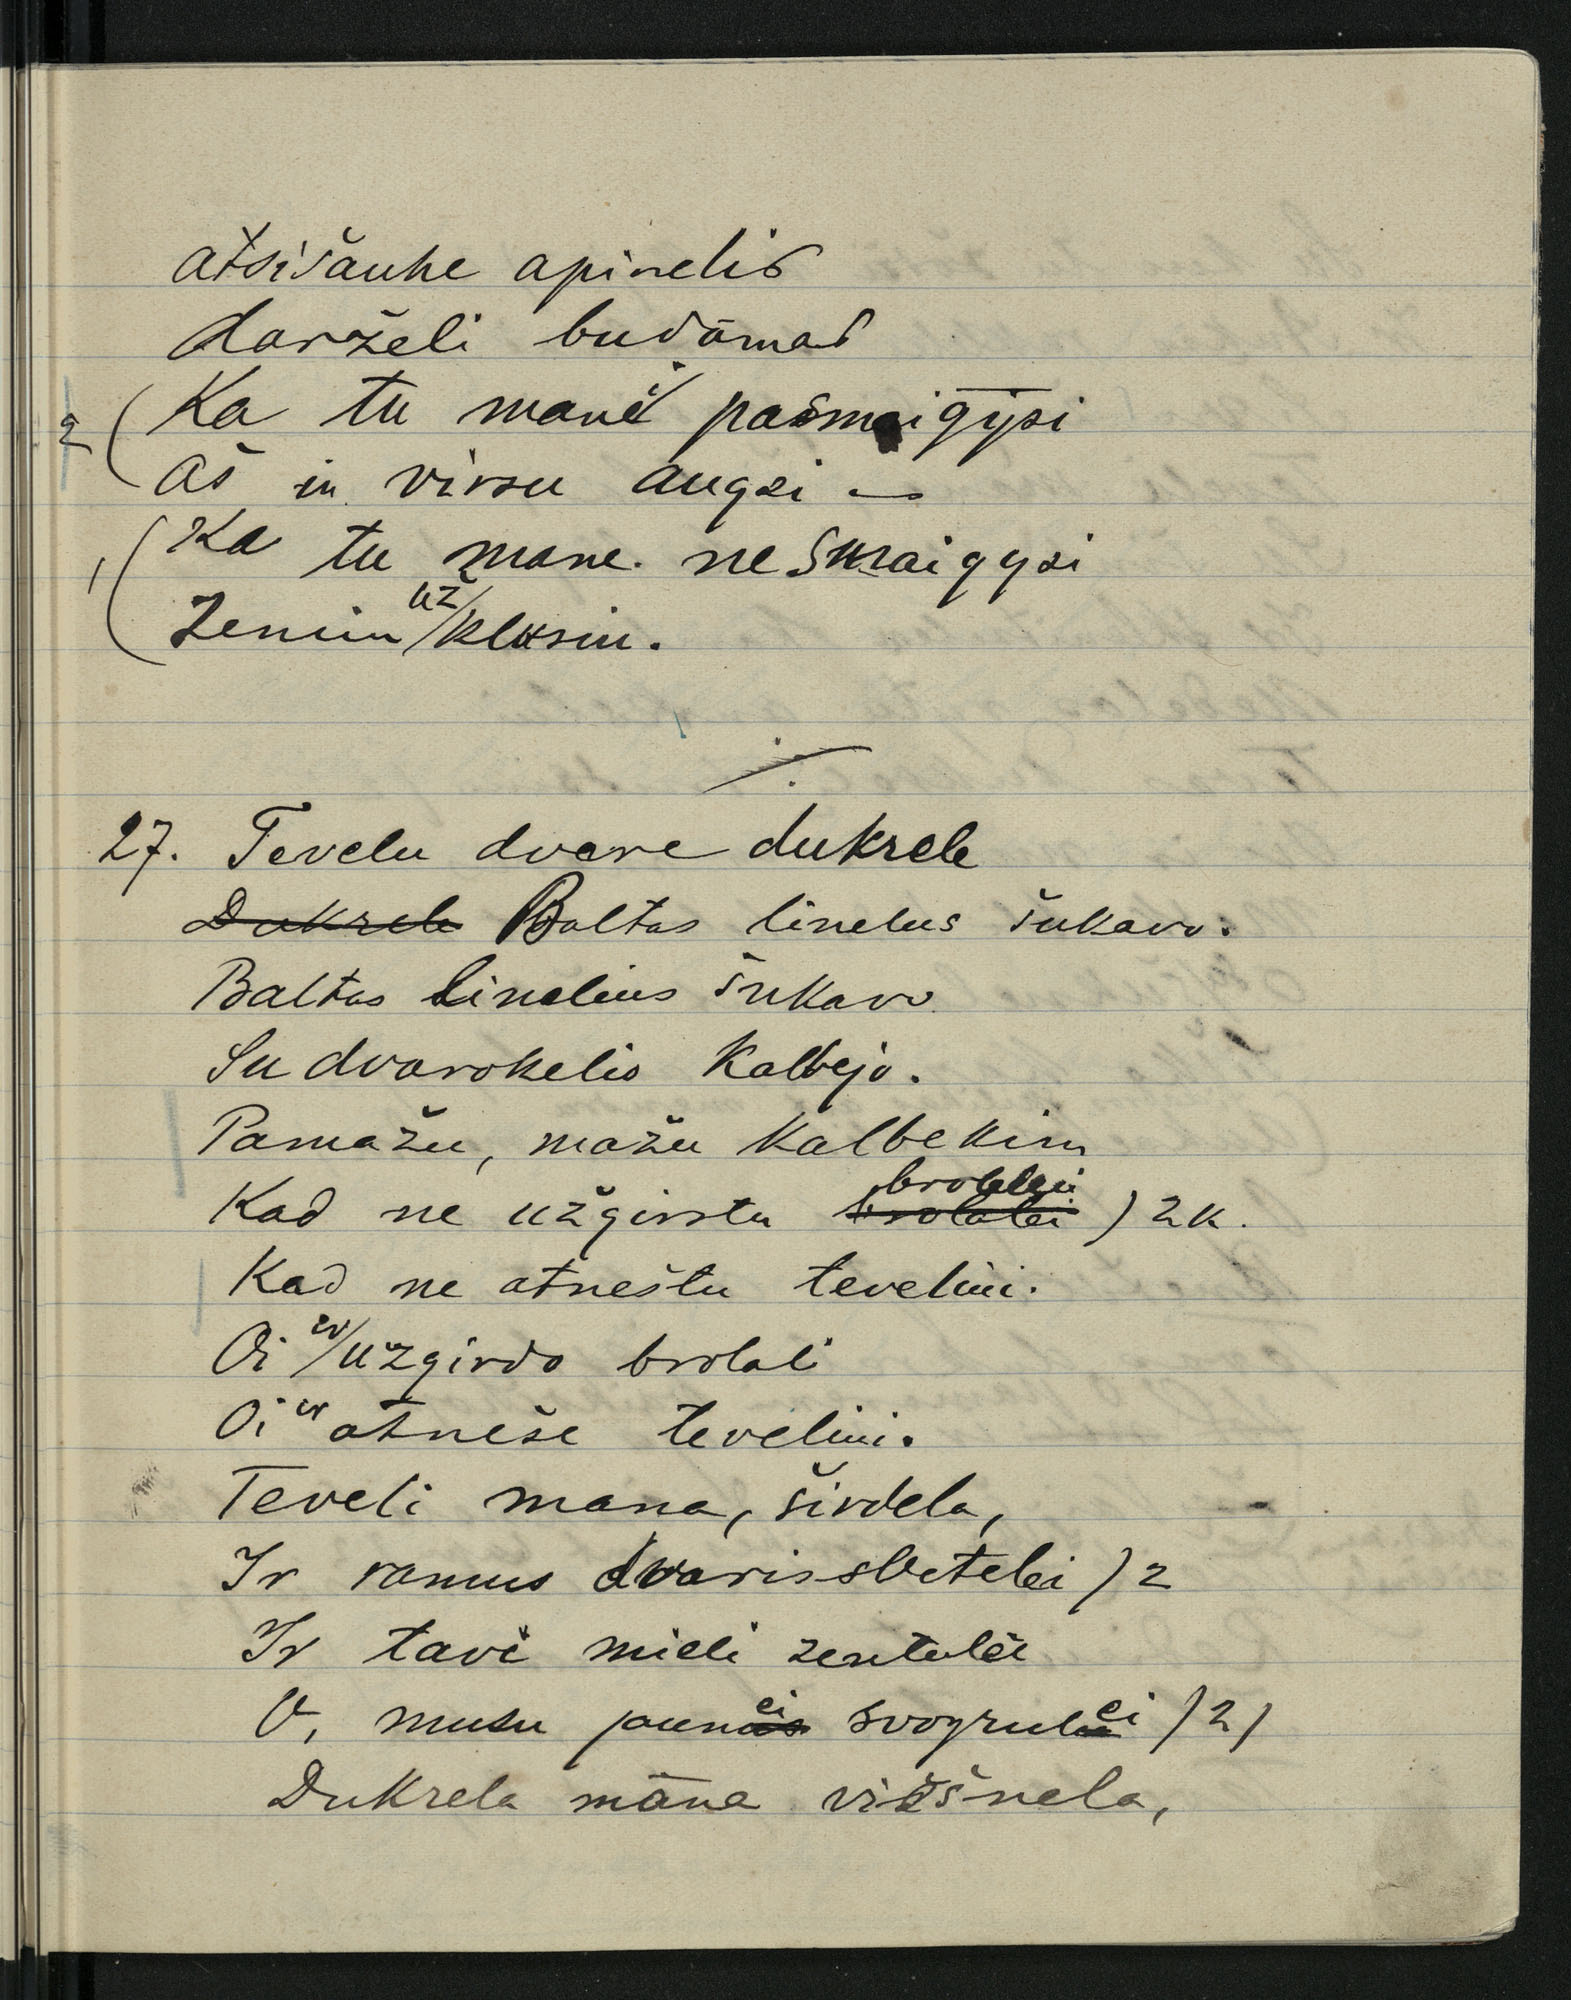 atsišauke apinelis
darželi budāmas
2 ( Ka tu manė pasmaigȳsi
aš in virsu augsi —
1 ( Ka tu mane. nesmaigysi
Žemiu už/klosiu.
27. Tevelu dvare dukrele
Dukrele Baltas linelus šukavo.
Baltas linelius šukavo
Su dvarokelio kalbejo.
Pamažu, mažu kalbekim
Kad ne užgirstu brolalei brolelei ) 2 k.
Kad ne atneštu tevelini.
Oi ir/užgirdo brolali
Oi ir atneše tevelini.
Teveli mana, širdela,
Ir ramus dvaris svetelei ) 2
Ir tavi mieli zentelei
O, musu jaunei svogrulei /2/
Dukrela māna viešnela,